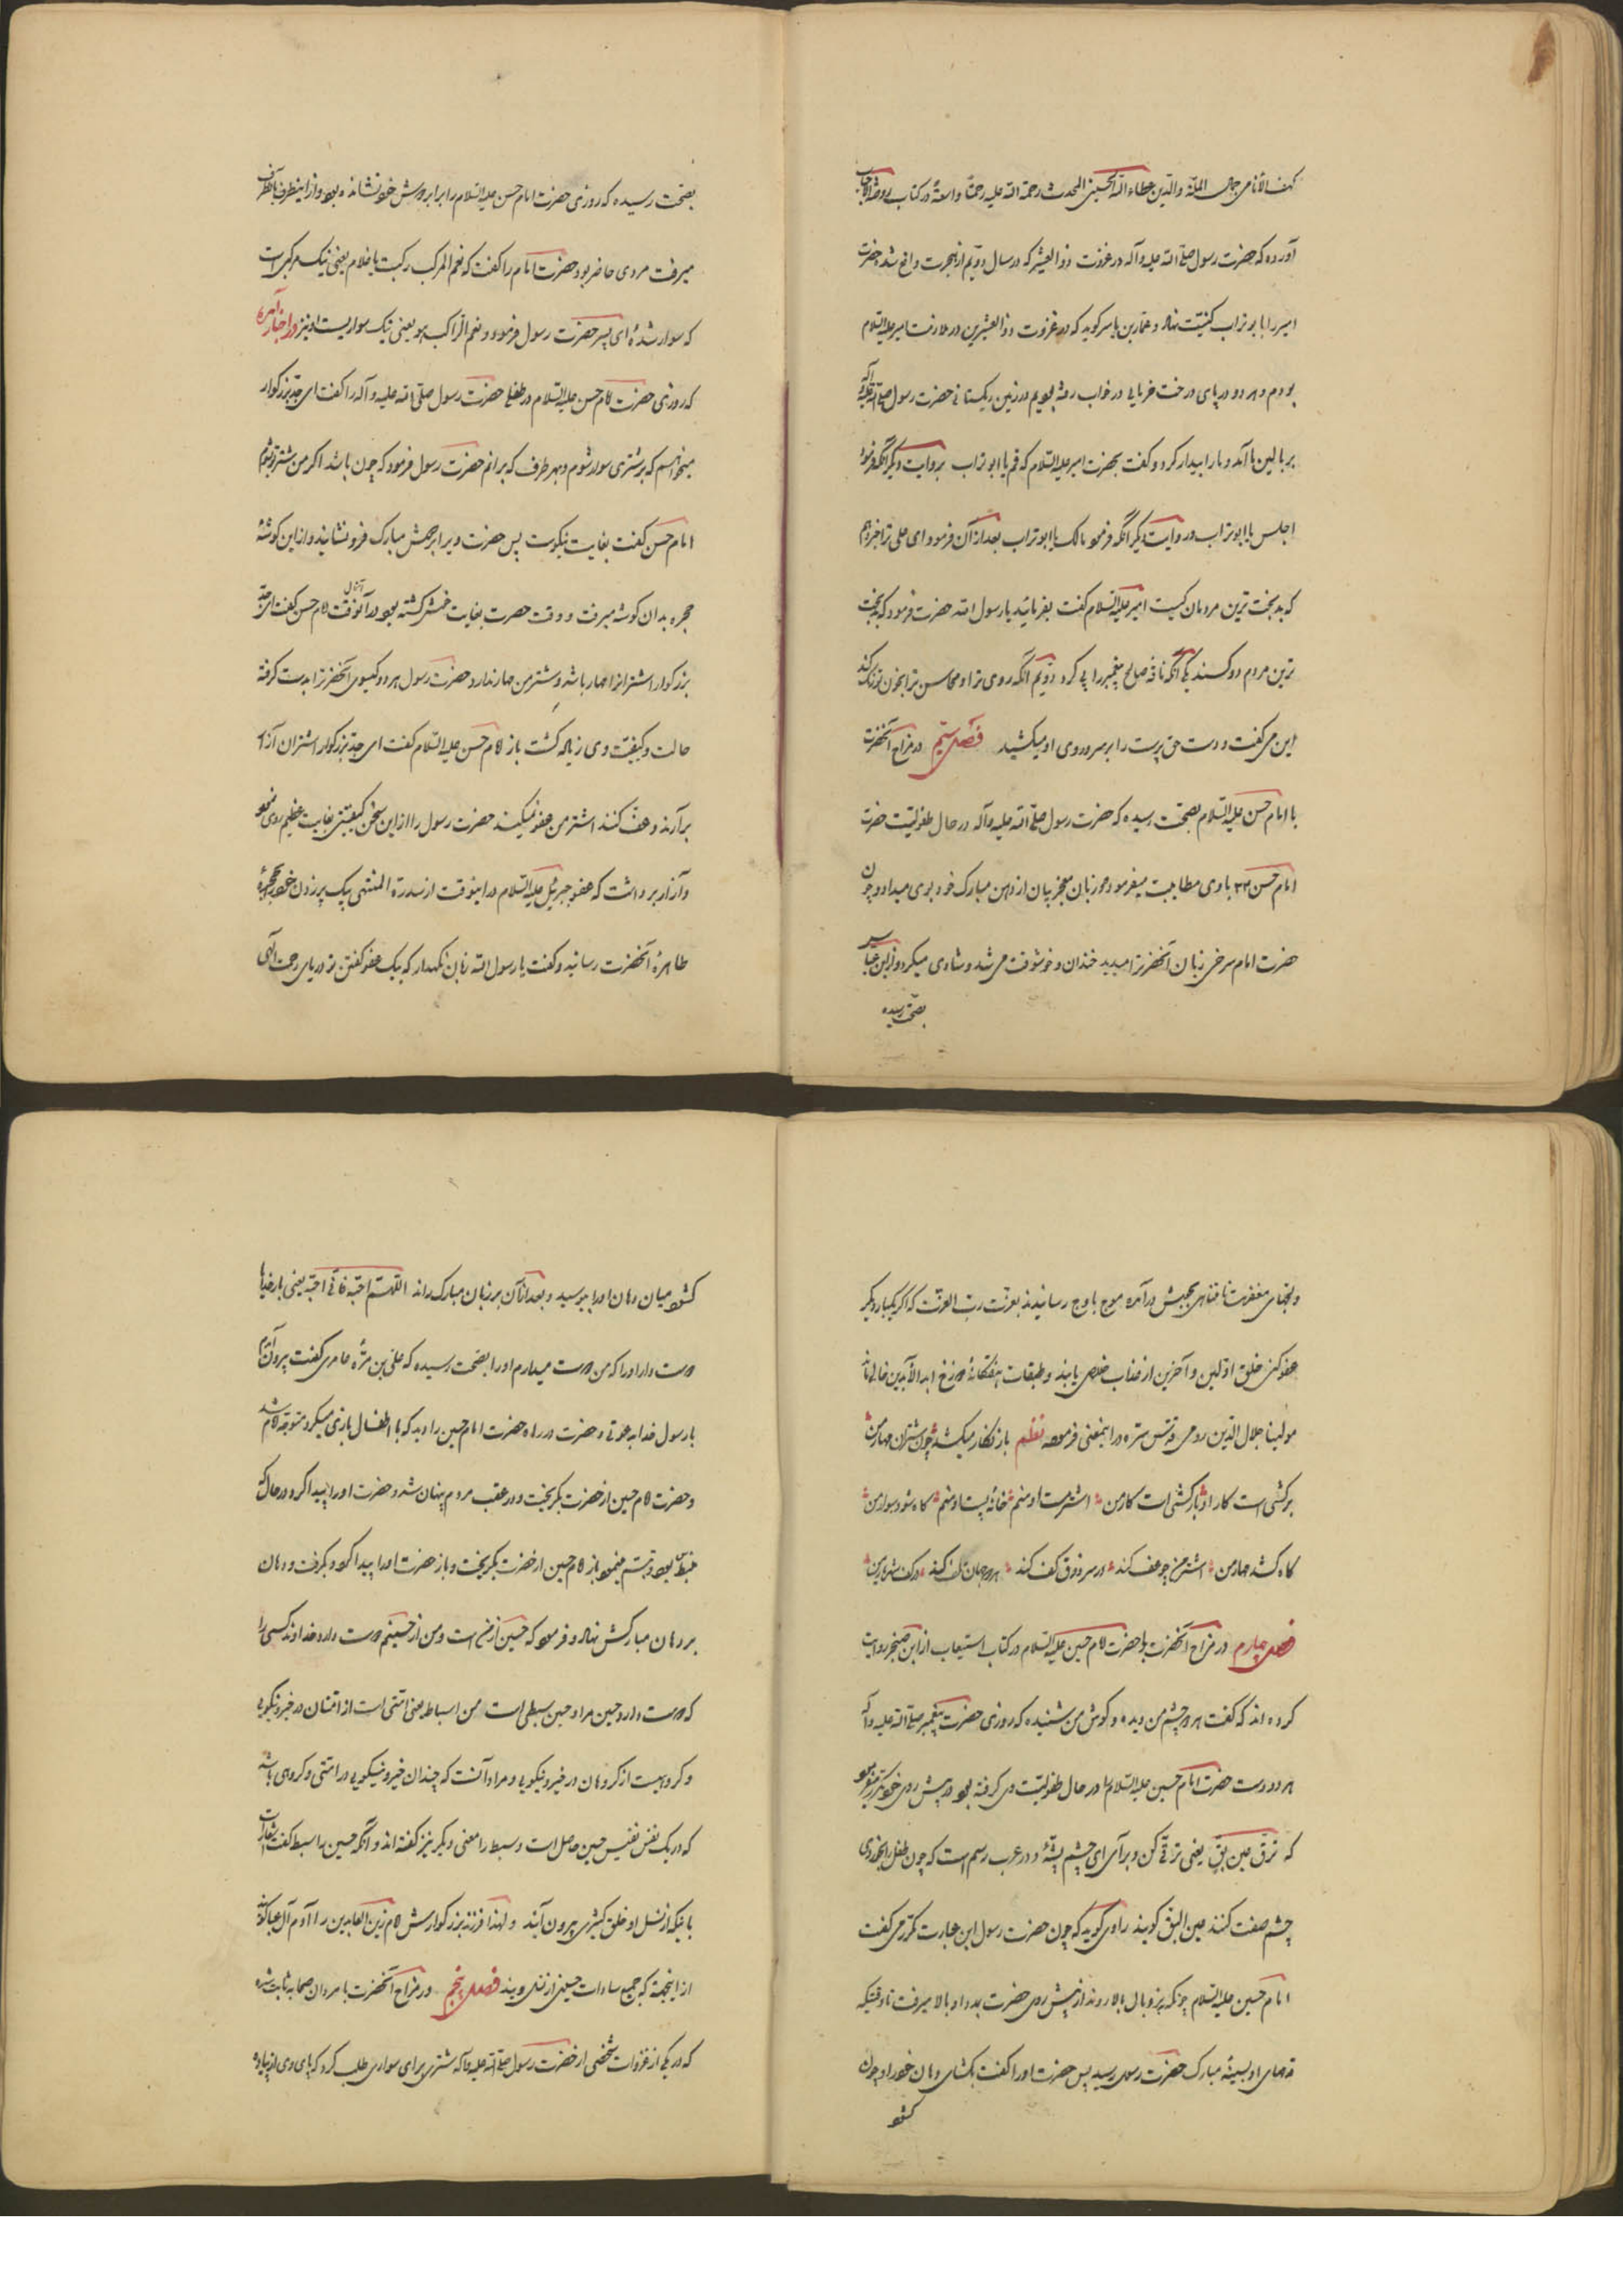 کهف الأنامی جمال الملة والدین عطاء الله الحسینی المحدث رحمة الله علیه رحمة واسعة در کتاب روضة الاحباب
آورده که حضرت رسول صلی الله علیه وآله در غزوت ذو العشیر که در سال دویم از هجرت واقع شد حضرت
امیر را ابو تراب کنیت نهاد و عمار بن یاسر کوید که در غزوت ذو العشیر من در ملازمت امیر علیه السلام
بودم و هر دو در پای درخت خرمایی در خواب رفته بودیم در زمین ریکستانی حضرت رسول صلی الله علیه وآله
بر بالین ما آمد و ما را بیدار کرد و کفت بحضرت امیر علیه السلام که قم یا ابو تراب بروایت دیکر آنکه فرمود
اجلس یا ابو تراب و روایت دیکر آنکه فرمود مالک یا ابو تراب بعد از آن فرمود ای علی ترا خبر دهم
که بدبخت ترین مردمان کیست امیر علیه السلام کفت بفرمائید یا رسول الله حضرت فرمود که بدبخت
ترین مردم دو کسند یکی آنکه ناقه صالح پیغمبر را پی کرد دویم آنکه روی ترا و محاسن ترا بخون تو رنک کند
این می کفت و دست حق پرست را بر سر و روی او میکشید فصل سیم در مزاح آنحضرت
با امام حسن علیه السلام بصحت رسیده که حضرت رسول صلی الله علیه وآله در حال طفولیت حضرت
امام حسن با وی مطایبت میفرمود و زبان معجز بیان از دهن مبارک خود بوی میداد و چون
حضرت امام سرخی زبان آنحضرت را میدید خندان و خوشوقت می شد و شادی میکرد و از ابن عباس
بصحت رسیده
بصحت رسیده که روزی حضرت امام حسن علیه السلام را برابر دوش خود نشانده بود و از اینطرف بآنطرف
میرفت مردی حاضر بود حضرت امام را کفت که نعم المرکب رکبت یا غلام یعنی نیک مرکبی است
که سوار شدهٔ ای پسر حضرت رسول فرمود و نعم الراکب هو یعنی نیک سواریست او نیز در اخبار آمده
که روزی حضرت امام حسن علیه السلام در طفلی حضرت رسول صلی الله علیه وآله را کفت ای جد بزرکوار
میخواهم که بر شتری سوار شوم و بهر طرف که برانم حضرت رسول فرمود که چون باشد اکر من شتر تو شوم
امام حسن کفت بغایت نیکوست پس حضرت ویرا بر دوش مبارک فرو نشانید و از این کوشهٔ
حجره بدان کوشه میرفت و وقت حضرت بغایت خوش کشته بود در آنوقت امام حسن کفت ای جد
بزرکوار اشتران را مهار باشد و شتر من مهار ندارد حضرت رسول هر دو کیسوی آنحضرت را بدست کرفته
حالت و کیفیت وی زیاده کشت باز امام حسن علیه السلام کفت ای جد بزرکوار اشتران آواز
برآرند و عف کنند اشتر من عفو نمیکند حضرت رسول را از این سخن کیفیتی بغایت عظیم روی نمود
و آواز برداشت که عفو جبرئیل علیه السلام در اینوقت از سدرة المنتهی بیک پر زدن خود را بحجرهٔ
طاهرهٔ آنحضرت رسانید و کفت یا رسول الله زبان نکهدار که بیک عفو کفتن تو دریای رحمت الهی
و لجهای مغفرت نامتناهی بجنبش درآمده موج باوج رسانیدند بعزت رب العزت که اکر یکبار دیکر
عفو کنی خلق اولین و آخرین از عذاب خلاص یابند و طبقات هفتکانهٔ دوزخ ابد الآبدین خالی ماند
مولینا جلال الدین رومی قدس سره در اینمعنی فرموده نظم باز قطار میکشد چون شتران مهار من
برکشی است کار او بارکشی است کار من اشتر مست او منم خانه پست او منم کاه شود سوار من
کاه کشد مهار من اشتر من چو عف کند در سر ذوق کف کند هر دو جهان تلف کند در کف شهریار من
فصل چهارم در مزاح آنحضرت با حضرت امام حسین علیه السلام در کتاب استیعاب از ابن صخر روایت
کرده اند که کفت هر دو چشم من دیده و کوش من شنیده که روزی حضرت پیغمبر صلی الله علیه وآله
هر دو دست حضرت امام حسین علیه السلام را در حال طفولیت وی کرفته بود در پیش روی خود و میفرمود
که ترق عین بق یعنی ترقی کن و برآی ای چشم پشهٔ و در عرب رسم است که چون طفل را بخوردی
چشم صفت کنند عین البق کویند راوی کوید که چون حضرت رسول این عبارت مکرر می کفت
امام حسین علیه السلام چونکه بنردبان بالا روند از پیش روی حضرت بمدد او بالا میرفت تا وقتیکه
قدمهای او بسینهٔ مبارک حضرت رسول رسید پس حضرت او را کفت بکشای دهان خود را و چون
کشود
کشود میان دهان او را بوسید و بعد از آن بر زبان مبارک راند اللهم احبه فانی احبه یعنی بار خدایا
دوست دار او را که من دوست میدارم او را بصحت رسیده که علی بن مره عامری کفت بیرون آمدم
با رسول خدا بدعوتی و حضرت در راه حضرت امام حسین را دید که با اطفال بازی میکرد متوجه امام شد
و حضرت امام حسین از حضرت بکریخت و در عقب مردم پنهان شد و حضرت او را پیدا کرد و در حالی که
منبسط بود و تبسم مینمود باز امام حسین از حضرت بکریخت و باز حضرت او را پیدا کرد و بکرفت و دهان
بر دهان مبارکش نهاد و فرمود که حسین از من است و من از حسینم دوست دارد خداوند کسی را
که دوست دارد حسین مرا و حسین سبطی است من اسباط یعنی امتی است از امتان در خیر و نیکویی
و کروهیست از کروهان در خیر و نیکویی و مراد آنست که چندان خیر و نیکویی در امتی و کروهی باشد
که در یک نفس نفیس حسین حاصل است و سبط را معنی دیکر نیز کفته اند و آنکه حسین را سبط کفت اشعار است
باینکه از نسل او خلق کثیری بیرون آیند و لهذا فرزند بزرکوارش امام زین العابدین را آدم آل عبا کویند
از اینجهة که جمیع سادات حسینی از نسل ویند فصل پنجم در مزاح آنحضرت با مردان صحابه ثابت شده
که در یکی از غزوات شخصی از حضرت رسول صلی الله علیه وآله شتری برای سواری طلب کرد که پای وی از پیاده